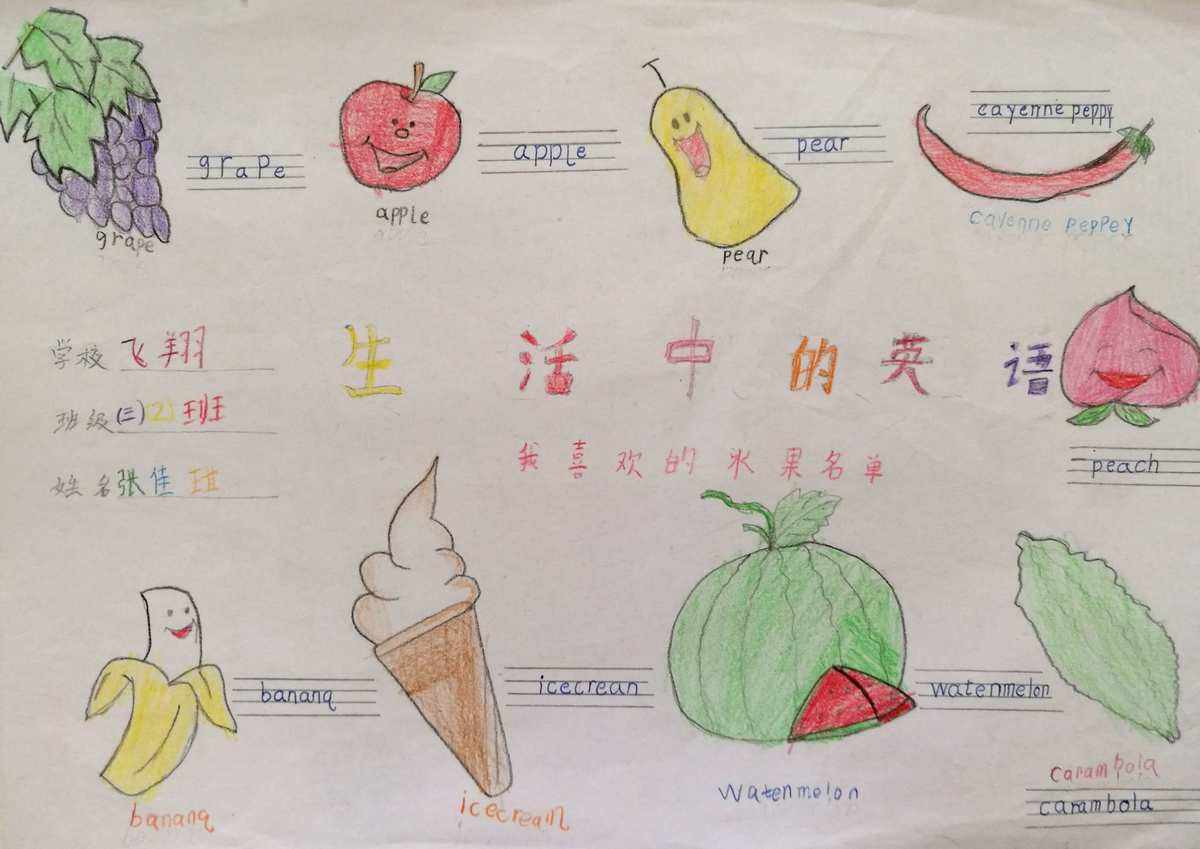 cayenne peppy
grape
apple
pear
apple
cayenne peppey
grape
pear
学校 飞翔
生活中的英语
班级(三)(2)班
我喜欢的水果名单
peach
姓名张佳琪
bananq
icecrean
watenmelon
carambola
watenmelon
carambola
bananq
icecrean